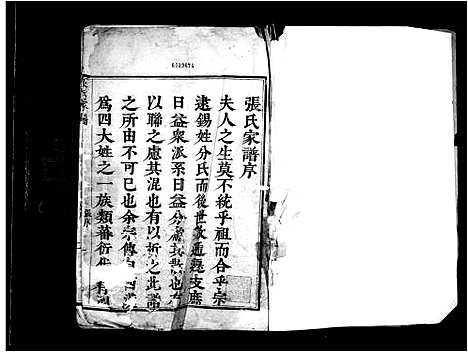 張氏家譜序
夫人之生莫不統乎祖而合乎宗
逮錫姓分氏而後世教通繇支庶
日益衆派系日益分慮其散也有
以聯之慮其混也有以析之此譜
之所由不可已也余宗傳
為四大姓之一族類蕃衍